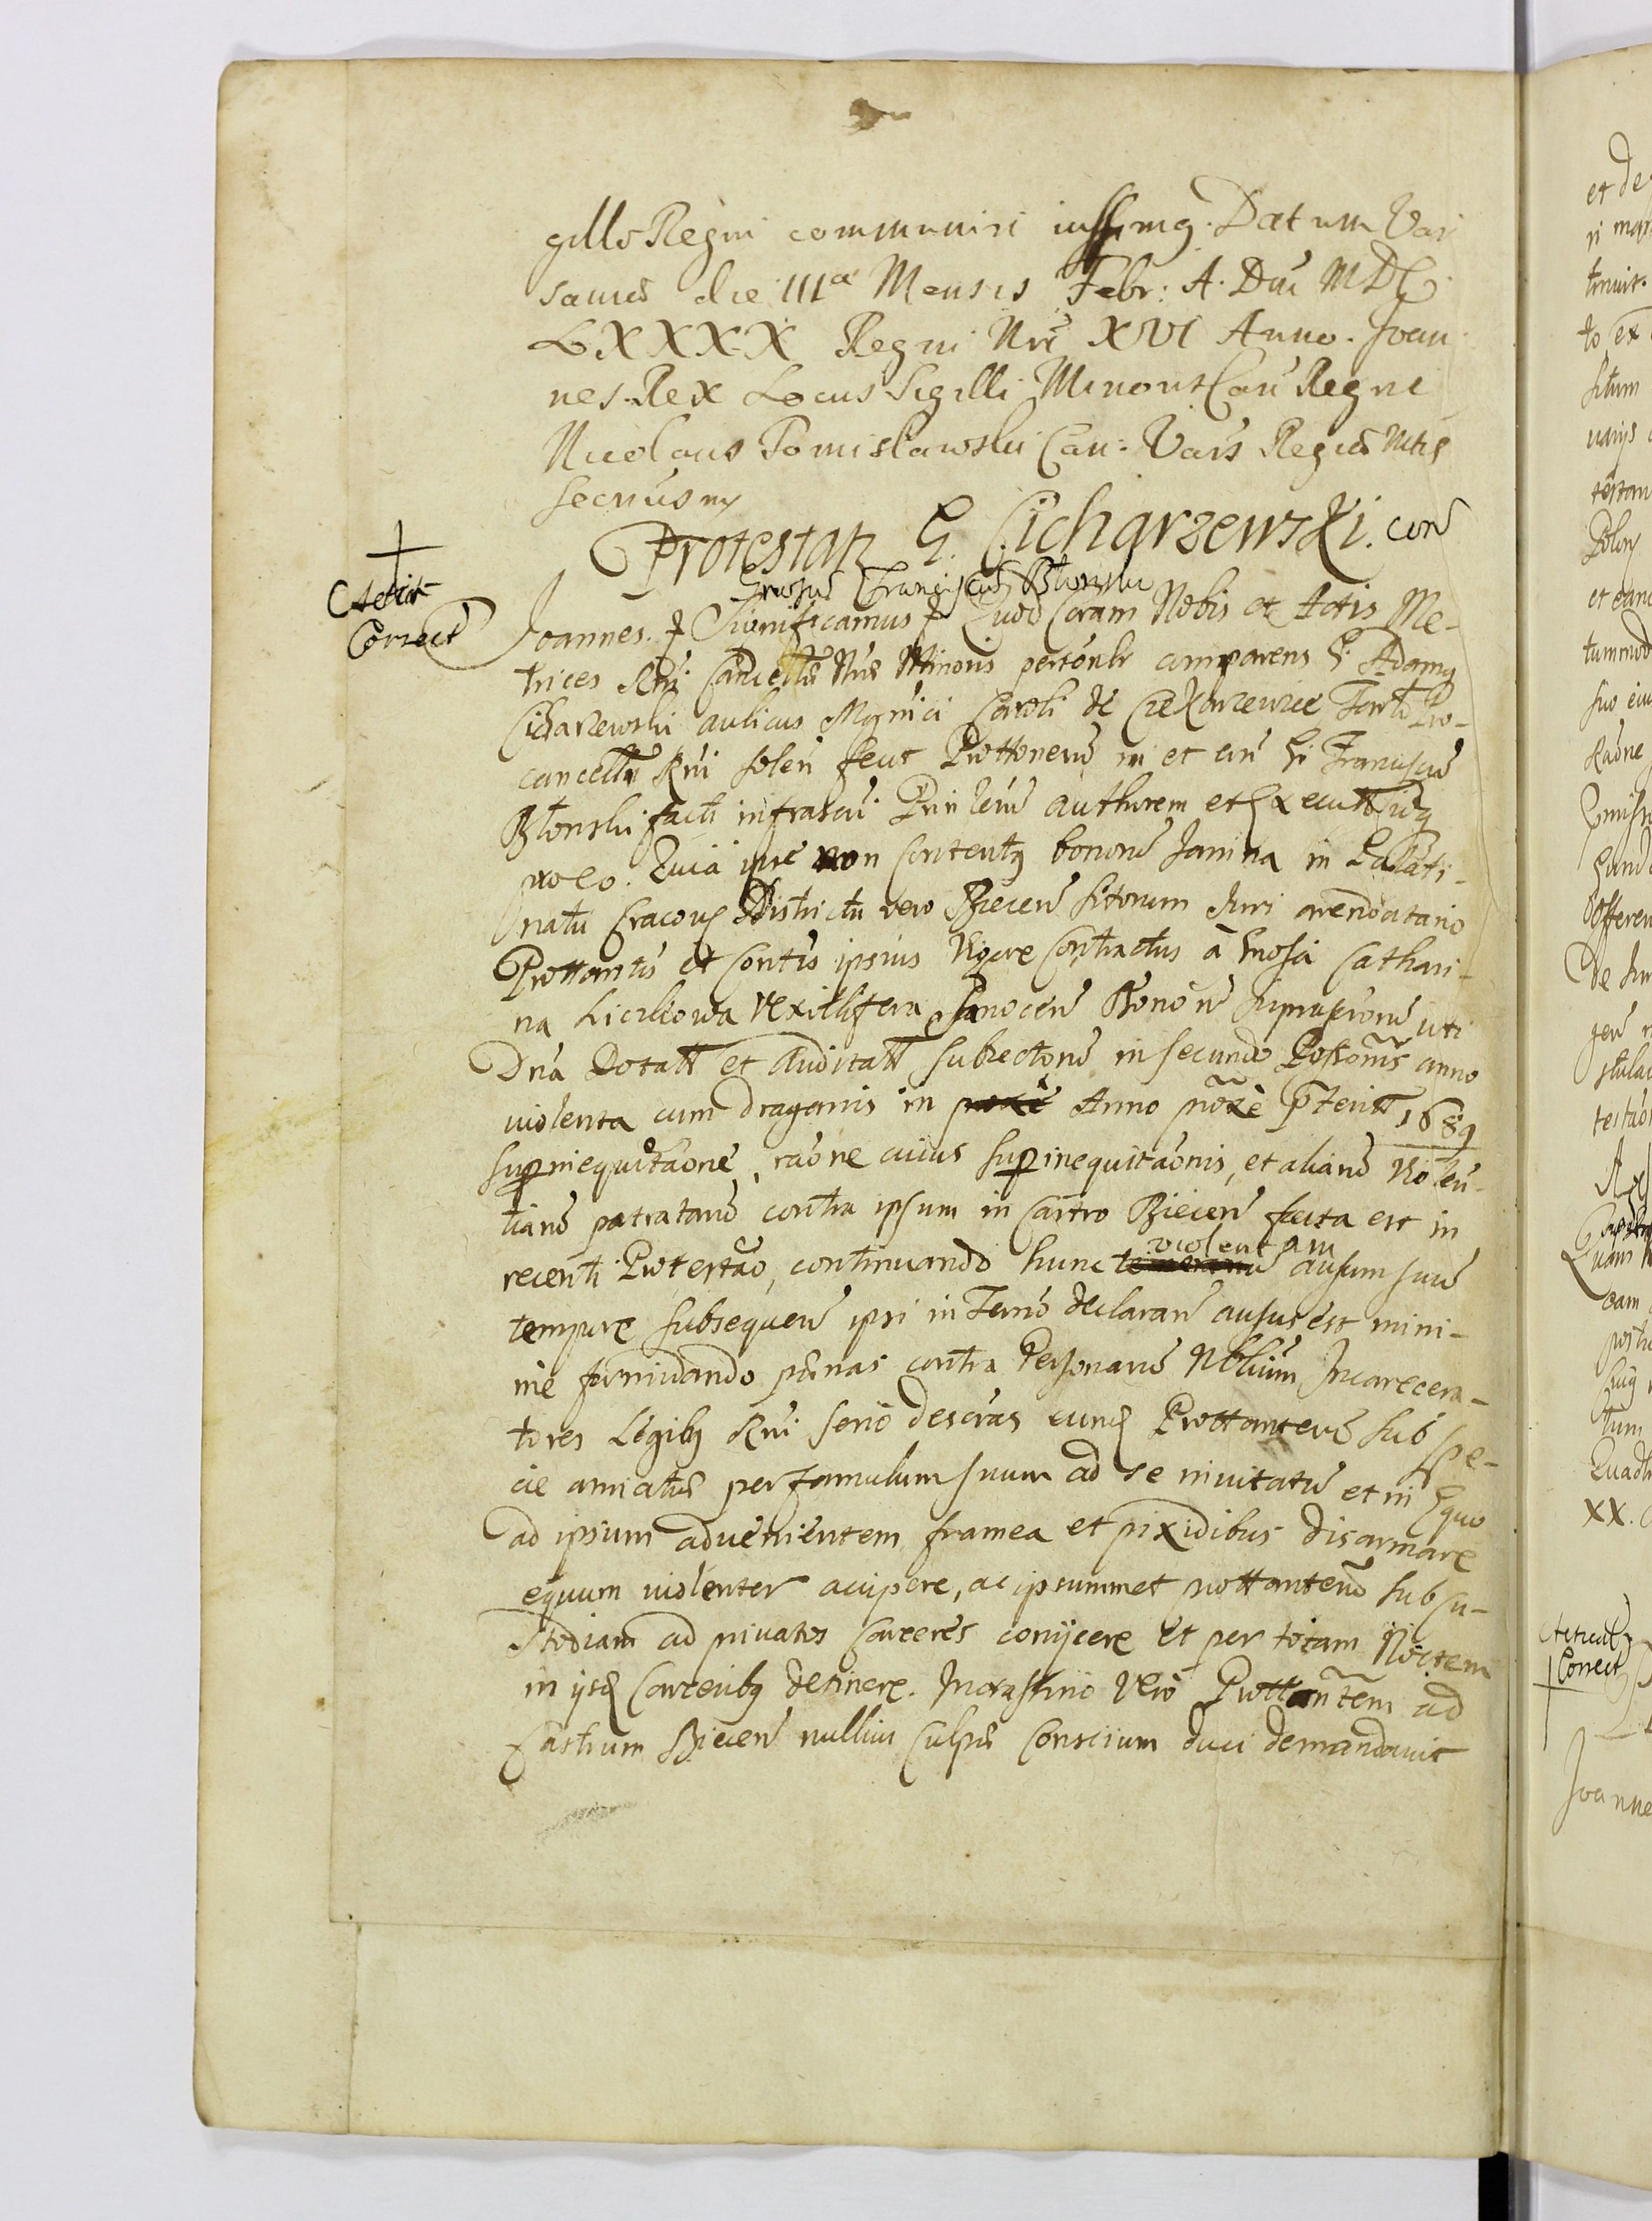 gillo Regni communiri iussimg. Datum Var
saviæ die IIIa Mensis Febr: A. Dni MDC
LXXXX Regni Nri XVI Anno. Joan
nes Rex Locus Sigilli Minoris Can Regni
Nicolaus Tomisławski Can: Vars Regiæ Mtis
Secrius mp
Protestatr G. Cicharzewski. con
Grosus Franciscus Błonski
Acticat
Correct
Joannes. Significamus Quod Coram Nobis et Actis Me-
trices Rni Cancellræ Nræ Minoris personlr comparens G. Adamg
Cicharzewski aulicus Mgnifici Caroli de Tarło Pro-
cancellri Rni solen fecit Prottonem in et con G. Franciscum
Błonski facti infrascri Prinlem authorem et Executorg
prolo. Quia ipse non contentg bonorum Janina in Palati-
natu Cracovg Districtu vero Biecen sitorum Juri arendatario
Prottantis et Contis ipsius Vigore Contractus a Grosa Cathari-
na Vexillifera Sanocen Bonorum suprasprorum uti
Dna Dotali et Auditali subiectorum in secundo Possonis anno
violenta cum dragonis in Anno proxe pterit 1689
superinequitaone, raone cuius superinequitaonis, et aliarum violen-
tiarum patratarum contra ipsum in Castro Biecen facta est in
recenti Protestao, continuando hunc violentam ausum suum
tempore subsequen ipsi in Termo declaran ausus est mini-
me formidando pœnas contra Personarum Nbilium Incarcera-
tores Legibg Rni serio descras eundg Prottantem sub spe-
cie amicitiæ per famulum suum ad se invitatum et in Equo
ad ipsum advenientem framea et pixidibus disarmare
equum violenter accipere, ac ipsummet prottantem sub cu-
stodiam ad privatos carceres conijcere et per totam Noctem
in ijsdg Carceribg detinere. In crastino vero Prottantem ad
Castrum Biecen nullius culpæ conscium duci demandavit